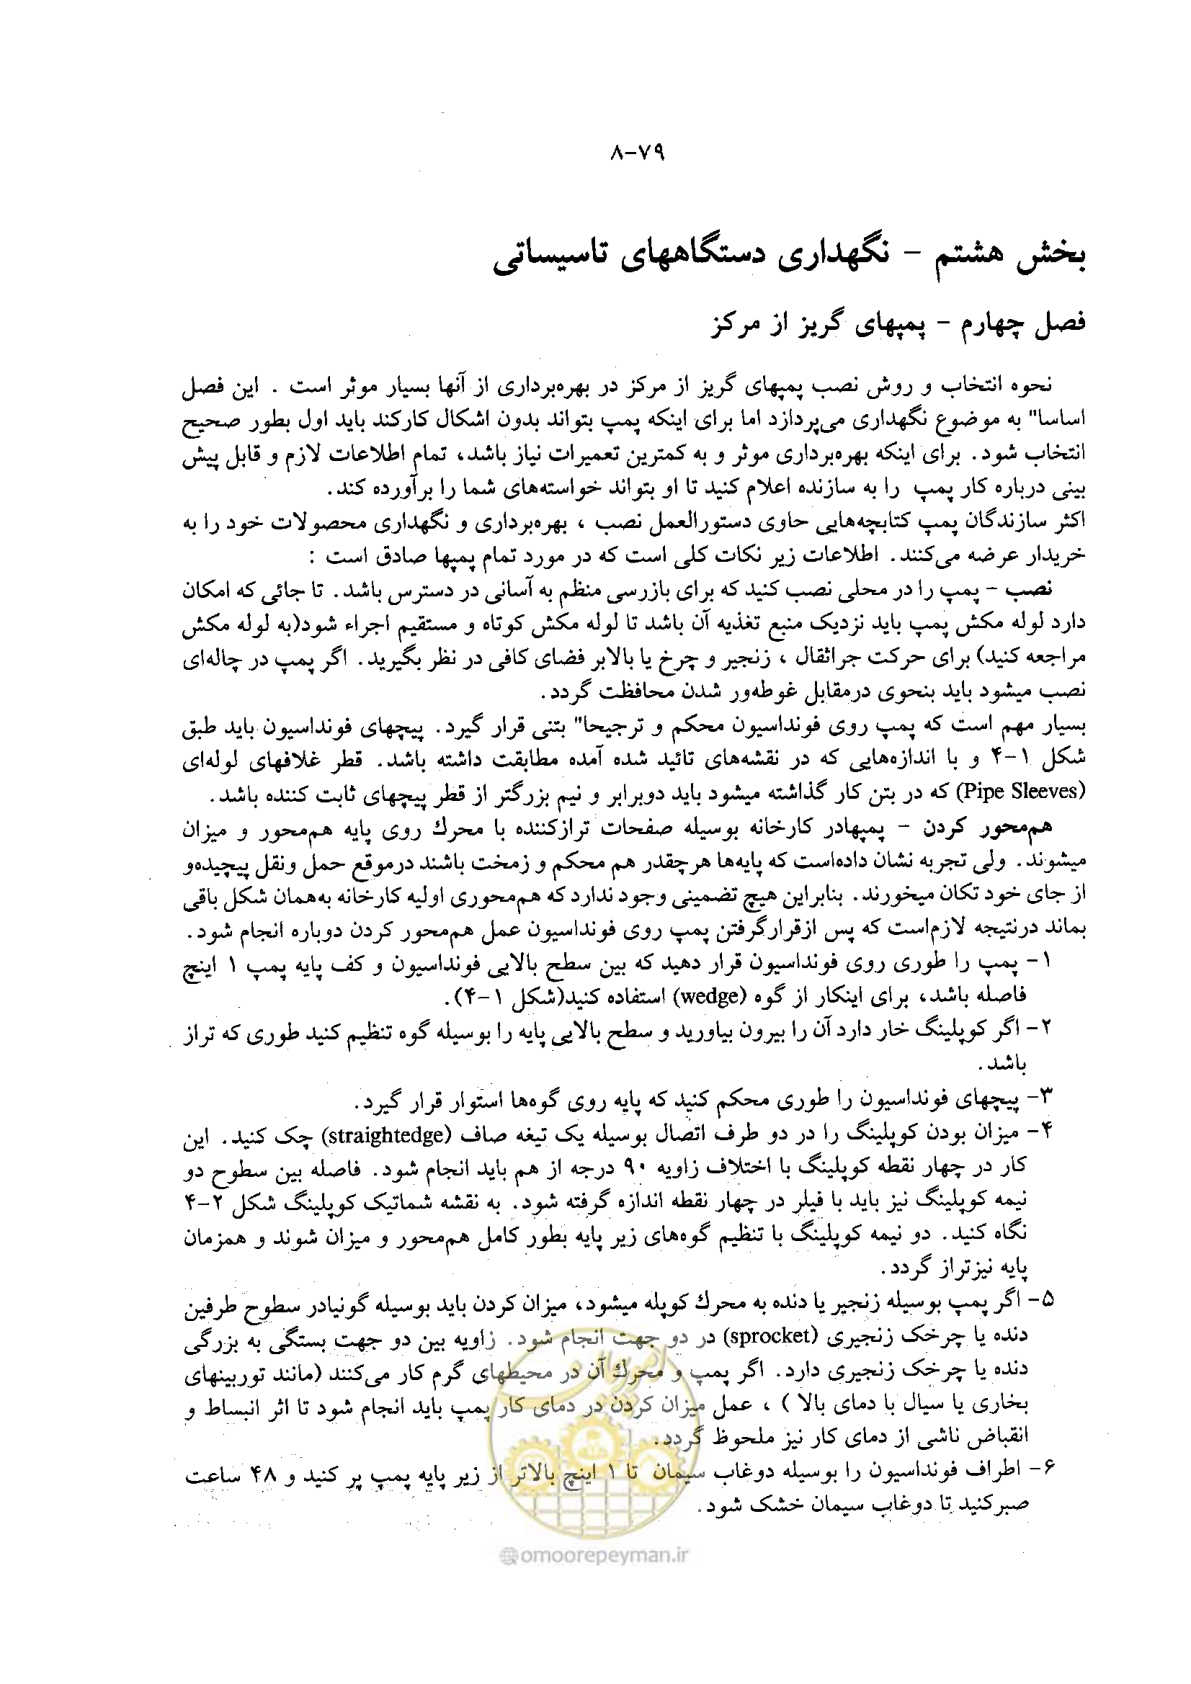 ۸-۷۹
بخش هشتم - نگهداری دستگاههای تاسیساتی
فصل چهارم - پمپهای گریز از مرکز
نحوه انتخاب و روش نصب پمپهای گریز از مرکز در بهره‌برداری از آنها بسیار موثر است . این فصل
اساسا" به موضوع نگهداری می‌پردازد اما برای اینکه پمپ بتواند بدون اشکال کارکند باید اول بطور صحیح
انتخاب شود. برای اینکه بهره‌برداری موثر و به کمترین تعمیرات نیاز باشد، تمام اطلاعات لازم و قابل پیش
بینی درباره کار پمپ را به سازنده اعلام کنید تا او بتواند خواسته‌های شما را برآورده کند.
اکثر سازندگان پمپ کتابچه‌هایی حاوی دستورالعمل نصب ، بهره‌برداری و نگهداری محصولات خود را به
خریدار عرضه می‌کنند. اطلاعات زیر نکات کلی است که در مورد تمام پمپها صادق است :
نصب - پمپ را در محلی نصب کنید که برای بازرسی منظم به آسانی در دسترس باشد. تا جائی که امکان
دارد لوله مکش پمپ باید نزدیک منبع تغذیه آن باشد تا لوله مکش کوتاه و مستقیم اجراء شود(به لوله مکش
مراجعه کنید) برای حرکت جراثقال ، زنجیر و چرخ یا بالابر فضای کافی در نظر بگیرید. اگر پمپ در چاله‌ای
نصب میشود باید بنحوی درمقابل غوطه‌ور شدن محافظت گردد.
بسیار مهم است که پمپ روی فونداسیون محکم و ترجیحا" بتنی قرار گیرد. پیچهای فونداسیون باید طبق
شکل ۱-۴ و با اندازه‌هایی که در نقشه‌های تائید شده آمده مطابقت داشته باشد. قطر غلافهای لوله‌ای
(Pipe Sleeves) که در بتن کار گذاشته میشود باید دوبرابر و نیم بزرگتر از قطر پیچهای ثابت کننده باشد.
هم‌محور کردن - پمپهادر کارخانه بوسیله صفحات ترازکننده با محرك روی پایه هم‌محور و میزان
میشوند. ولی تجربه نشان داده‌است که پایه‌ها هرچقدر هم محکم و زمخت باشند درموقع حمل ونقل پیچیده‌و
از جای خود تکان میخورند. بنابراین هیچ تضمینی وجود ندارد که هم‌محوری اولیه کارخانه به‌همان شکل باقی
بماند درنتیجه لازم‌است که پس ازقرارگرفتن پمپ روی فونداسیون عمل هم‌محور کردن دوباره انجام شود.
۱- پمپ را طوری روی فونداسیون قرار دهید که بین سطح بالایی فونداسیون و کف پایه پمپ ۱ اینچ
فاصله باشد، برای اینکار از گوه (wedge) استفاده کنید(شکل ۱-۴).
۲- اگر کوپلینگ خار دارد آن را بیرون بیاورید و سطح بالایی پایه را بوسیله گوه تنظیم کنید طوری که تراز
باشد.
۳- پیچهای فونداسیون را طوری محکم کنید که پایه روی گوه‌ها استوار قرار گیرد.
۴- میزان بودن کوپلینگ را در دو طرف اتصال بوسیله یک تیغه صاف (straightedge) چک کنید. این
کار در چهار نقطه کوپلینگ با اختلاف زاویه ۹۰ درجه از هم باید انجام شود. فاصله بین سطوح دو
نیمه کوپلینگ نیز باید با فیلر در چهار نقطه اندازه گرفته شود. به نقشه شماتیک کوپلینگ شکل ۲-۴
نگاه کنید. دو نیمه کوپلینگ با تنظیم گوه‌های زیر پایه بطور کامل هم‌محور و میزان شوند و همزمان
پایه نیزتراز گردد.
۵- اگر پمپ بوسیله زنجیر یا دنده به محرك کوپله میشود، میزان کردن باید بوسیله گونیادر سطوح طرفین
دنده یا چرخک زنجیری (sprocket) در دو جهت انجام شود. زاویه بین دو جهت بستگی به بزرگی
دنده یا چرخک زنجیری دارد. اگر پمپ و محرك آن در محیطهای گرم کار می‌کنند (مانند توربینهای
بخاری یا سیال با دمای بالا ) ، عمل میزان کردن در دمای کار پمپ باید انجام شود تا اثر انبساط و
انقباض ناشی از دمای کار نیز ملحوظ گردد.
۶- اطراف فونداسیون را بوسیله دوغاب سیمان تا ۱ اینچ بالاتر از زیر پایه پمپ پر کنید و ۴۸ ساعت
صبرکنید تا دوغاب سیمان خشک شود.
@omoorepeyman.ir